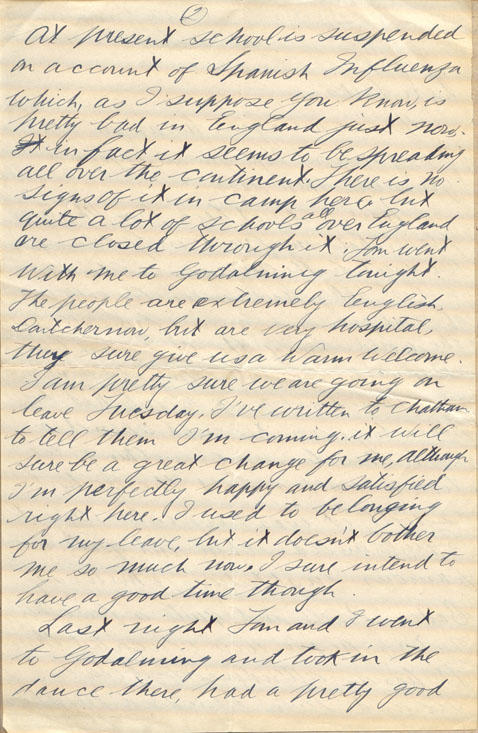 (2)
At present school is suspended
on account of Spanish Influenza
which, as I suppose you know, is
pretty bad in England just now.
It in fact it seems to be spreading
all over the continent. There is no
signs of it in camp here, but
quite a lot of schools all over England
are closed through it. Jim went
with me to Godalming tonight.
The people are extremely English,
dontchernow, but are very hospital,
they sure give us a warm welcome.
I am pretty sure we are going on
leave Tuesday. I've written to Chatham
to tell them I'm coming. it will
sure be a great change for me, although
I'm perfectly happy and satisfied
right here. I used to be longing
for my leave, but it doesn't bother
me so much now. I sure intend to
have a good time though.
Last night Jim and I went
to Godalming and took in the
dance there, had a pretty good